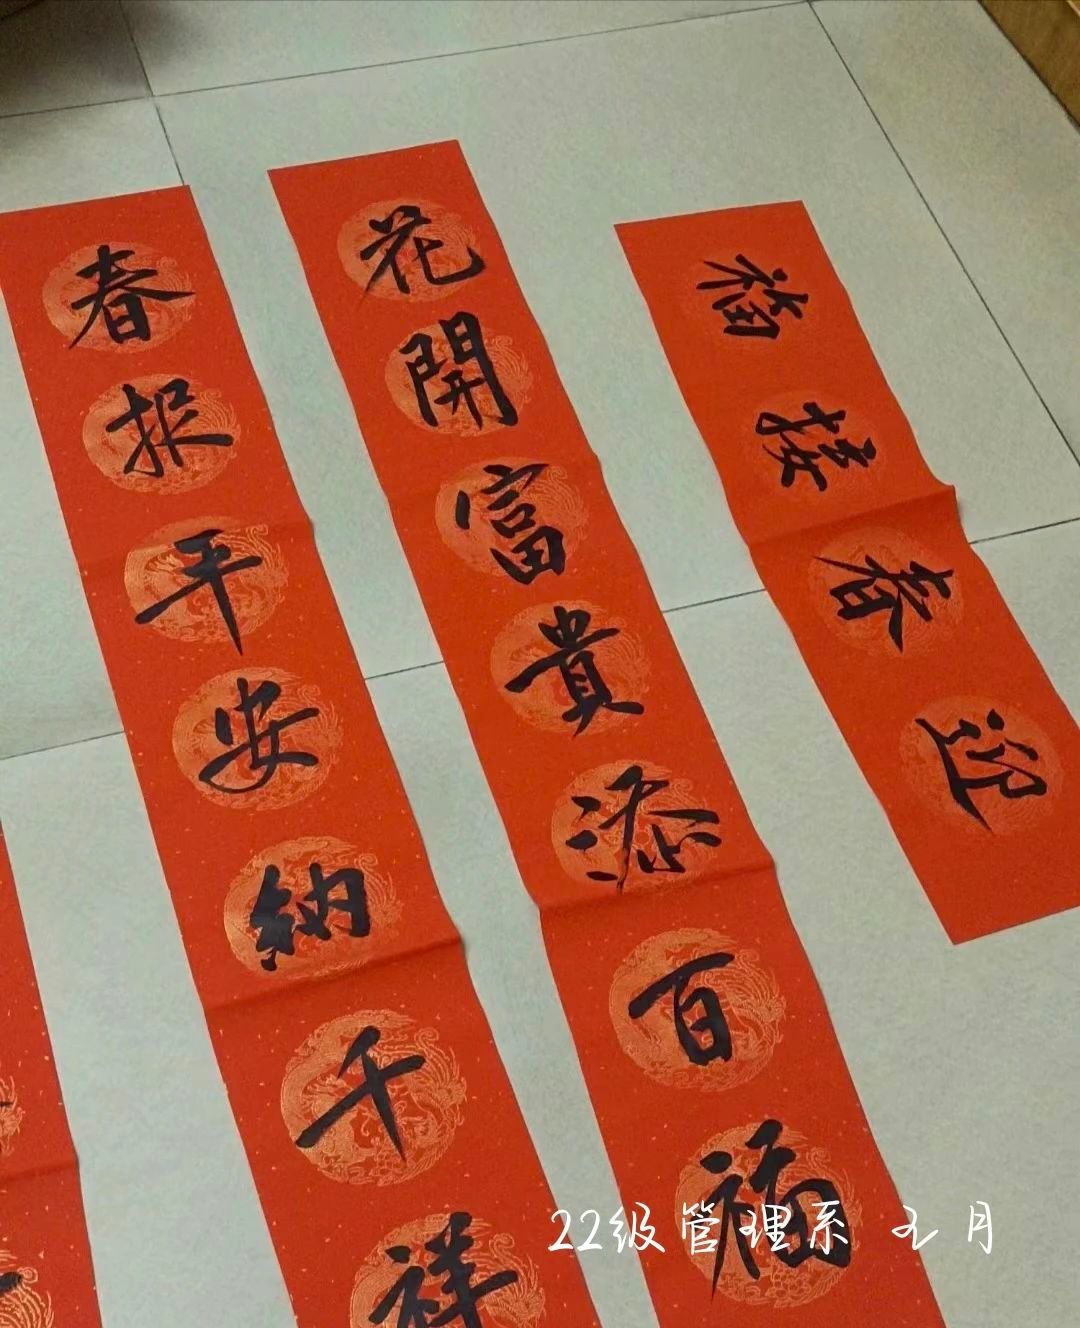 春报平安纳千祥
花開富貴添百福
迎春接福
22级管理系 王月